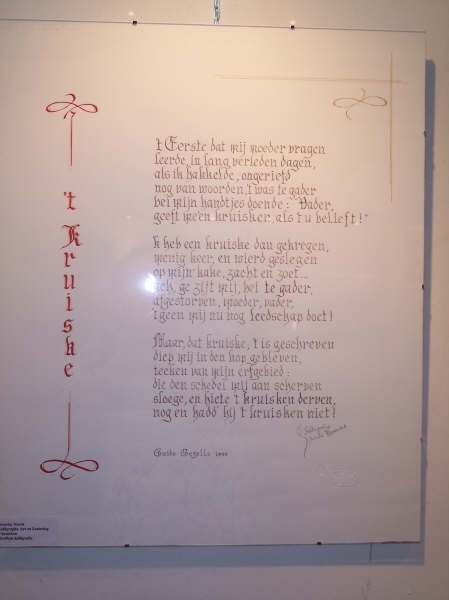 't Kruiske
't Eerste dat mij moeder vragen
leerde, in lang verleden dagen,
als ik hakkelde, ongeriefd
nog van woorden, 't was te gader
bei mijn handtjes doende: "Vader,
geeft me 'en kruisken, als 't u belieft!"
'k Heb een kruiske dan gekregen,
menig keer, en wierd geslegen
op mijn kake, zacht en zoet...
Ach, ge zijt mij, bei te gader,
afgestorven, moeder, vader,
't geen mij nu nog leedschap doet!
Maar, dat kruiske, 't is geschreven
diep mij in den kop gebleven,
teeken van mijn erfgebied:
die den schedel mij aan scherven
sloege, en hiete 't kruisken derven,
nog en hadd' hij 't kruisken niet!
Guido Gezelle